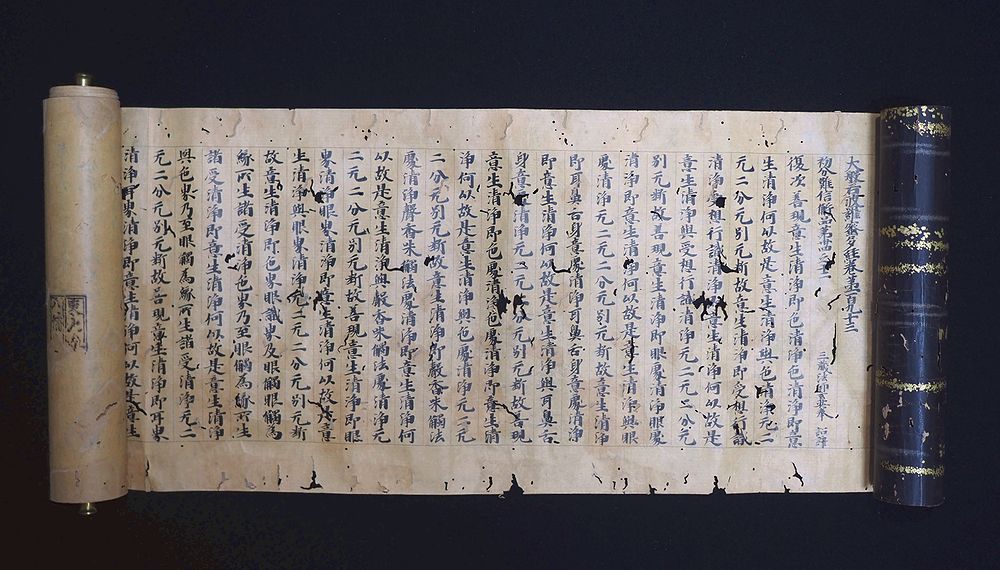 大般若波羅蜜多經卷第一百九十三
初分難信解品第卅四之十二 三藏法師玄奘奉 詔譯
復次善現意生清淨即色清淨色清淨即意
生清淨何以故是意生清淨與色清淨无二
无二分无別无斷故意生清淨即受想行識
清淨受想行識清淨即意生清淨何以故是
意生清淨與受想行識清淨无二无二分无
別无斷故善現意生清淨即眼處清淨眼處
清淨即意生清淨何以故是意生清淨與眼
處清淨无二无二分无別无斷故意生清淨
即耳鼻舌身意處清淨耳鼻舌身意處清淨
即意生清淨何以故是意生清淨與耳鼻舌
身意處清淨无二无二分无別无斷故善現
意生清淨即色處清淨色處清淨即意生清
淨何以故是意生清淨與色處清淨无二无
二分无別无斷故意生清淨即聲香味觸法
處清淨聲香味觸法處清淨即意生清淨何
以故是意生清淨與聲香味觸法處清淨无
二无二分无別无斷故善現意生清淨即眼
界清淨眼界清淨即意生清淨何以故是意
生清淨與眼界清淨无二无二分无別无斷
故意生清淨即色界眼識界及眼觸眼觸為
緣所生諸受清淨色界乃至眼觸為緣所生
諸受清淨即意生清淨何以故是意生清淨
與色界乃至眼觸為緣所生諸受清淨无二
无二分无別无斷故善現意生清淨即耳界
清淨耳界清淨即意生清淨何以故是意生